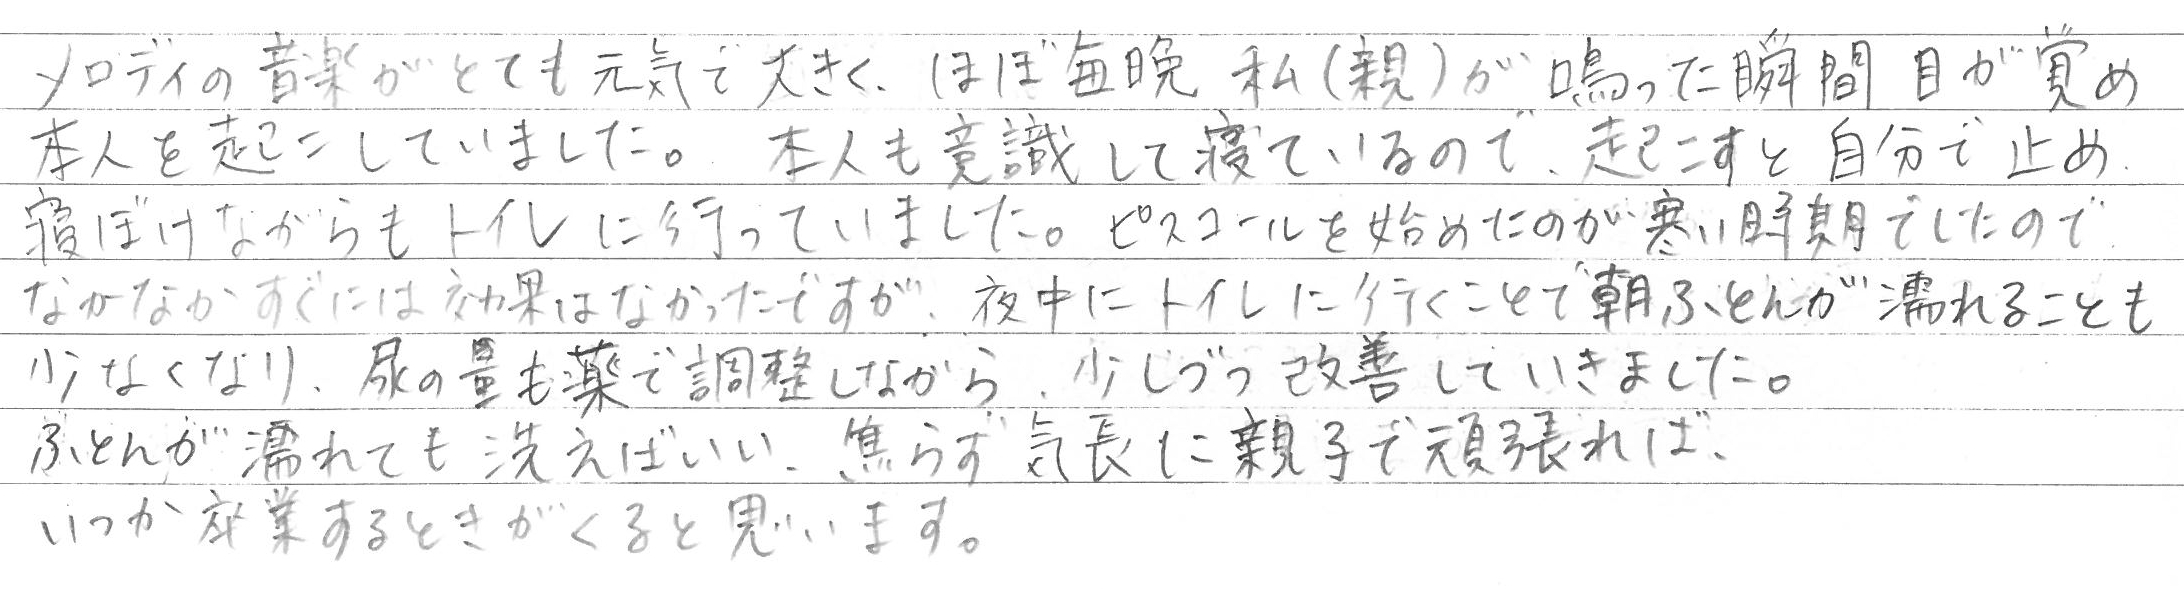 メロディの音楽がとても元気で大きく、ほぼ毎晩 私(親)が 鳴った瞬間 目が覚め
本人を起こしていました。 本人も意識して寝ているので、起こすと 自分で止め
寝ぼけながらもトイレに行っていました。ピスコールを始めたのが寒い時期でしたので
なかなかすぐには効果はなかったですが、夜中にトイレに行くことで朝ふとんが濡れることも
少なくなり、尿の量も薬で調整しながら、少しづつ改善していきました。
ふとんが濡れても洗えばいい、焦らず気長に親子で頑張れば、
いつか卒業するときがくると思います。